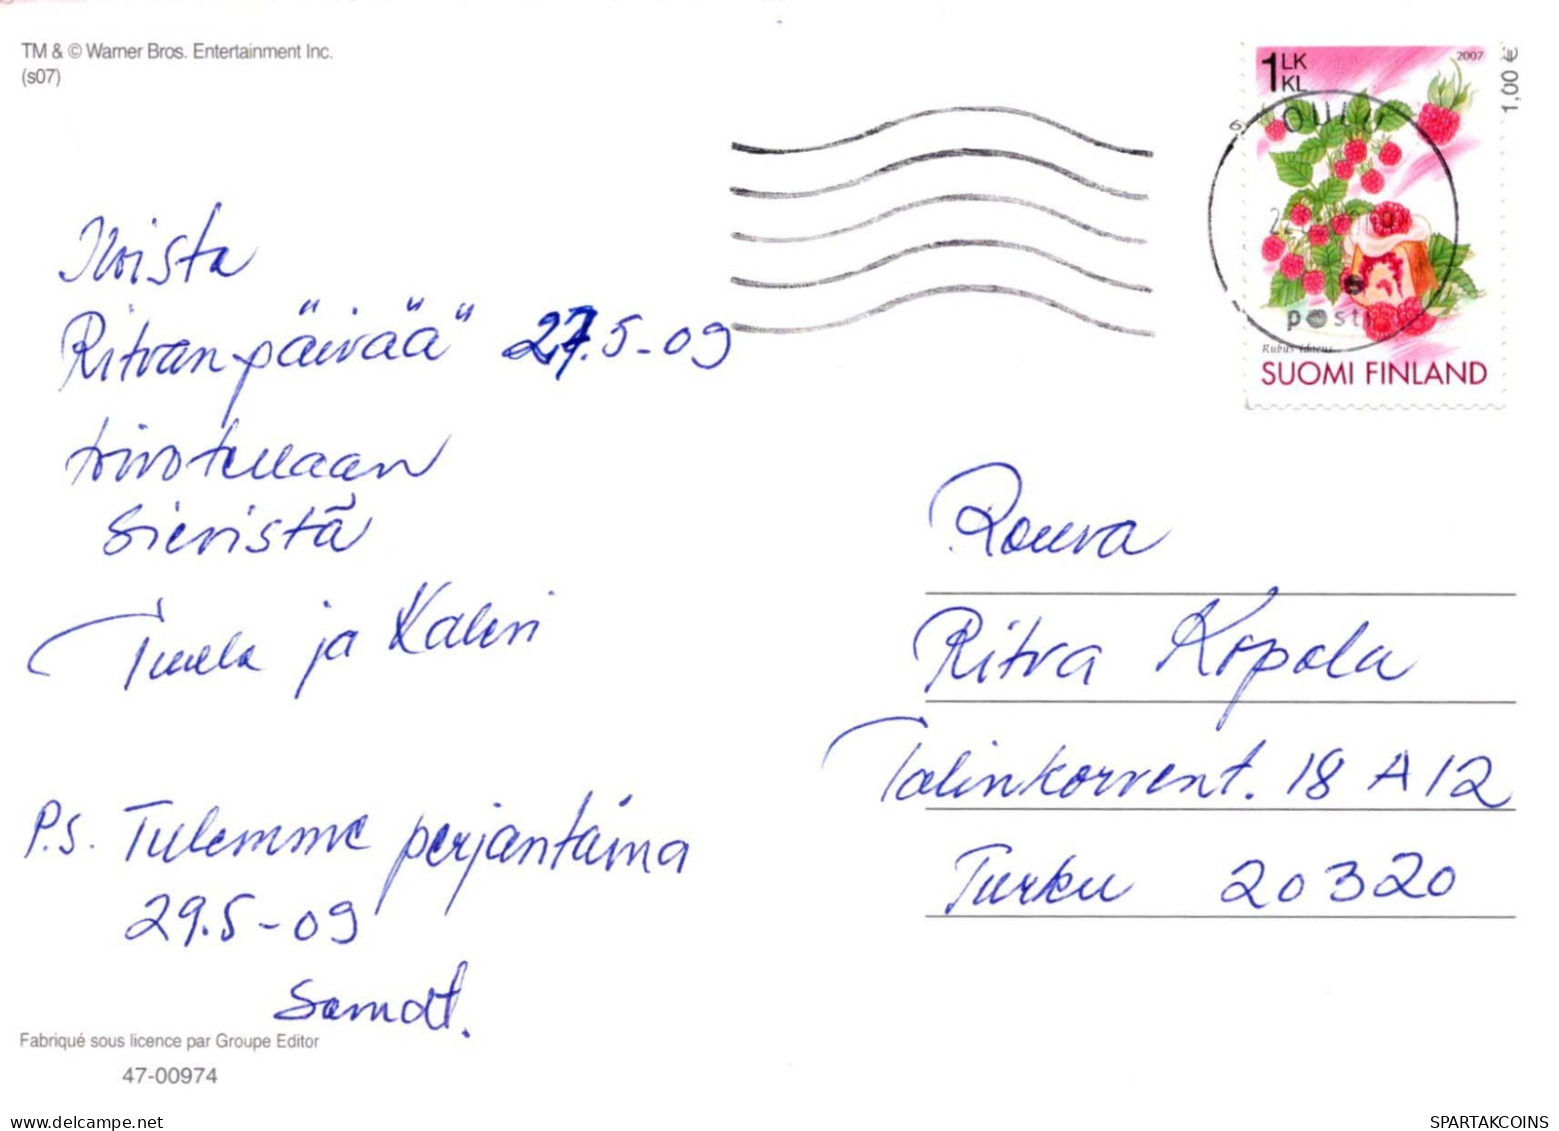 TM & © Warner Bros. Entertainment Inc.
(s07)
1 LK
KL
2007
1,00 €
OULU
posti
Rubus idaeus
SUOMI FINLAND
Iloista
Ritvan "päivää" 27.5-09
toivotellaan
Sievistä
Tuula ja Kaleri
P.S. Tulemme perjantaina
29.5-09
Samat.
Rouva
Ritva Kopola
Talinkorvent. 18 A 12
Turku 20320
Fabriqué sous licence par Groupe Editor
47-00974
SPARTAKCOINS
www.delcampe.net